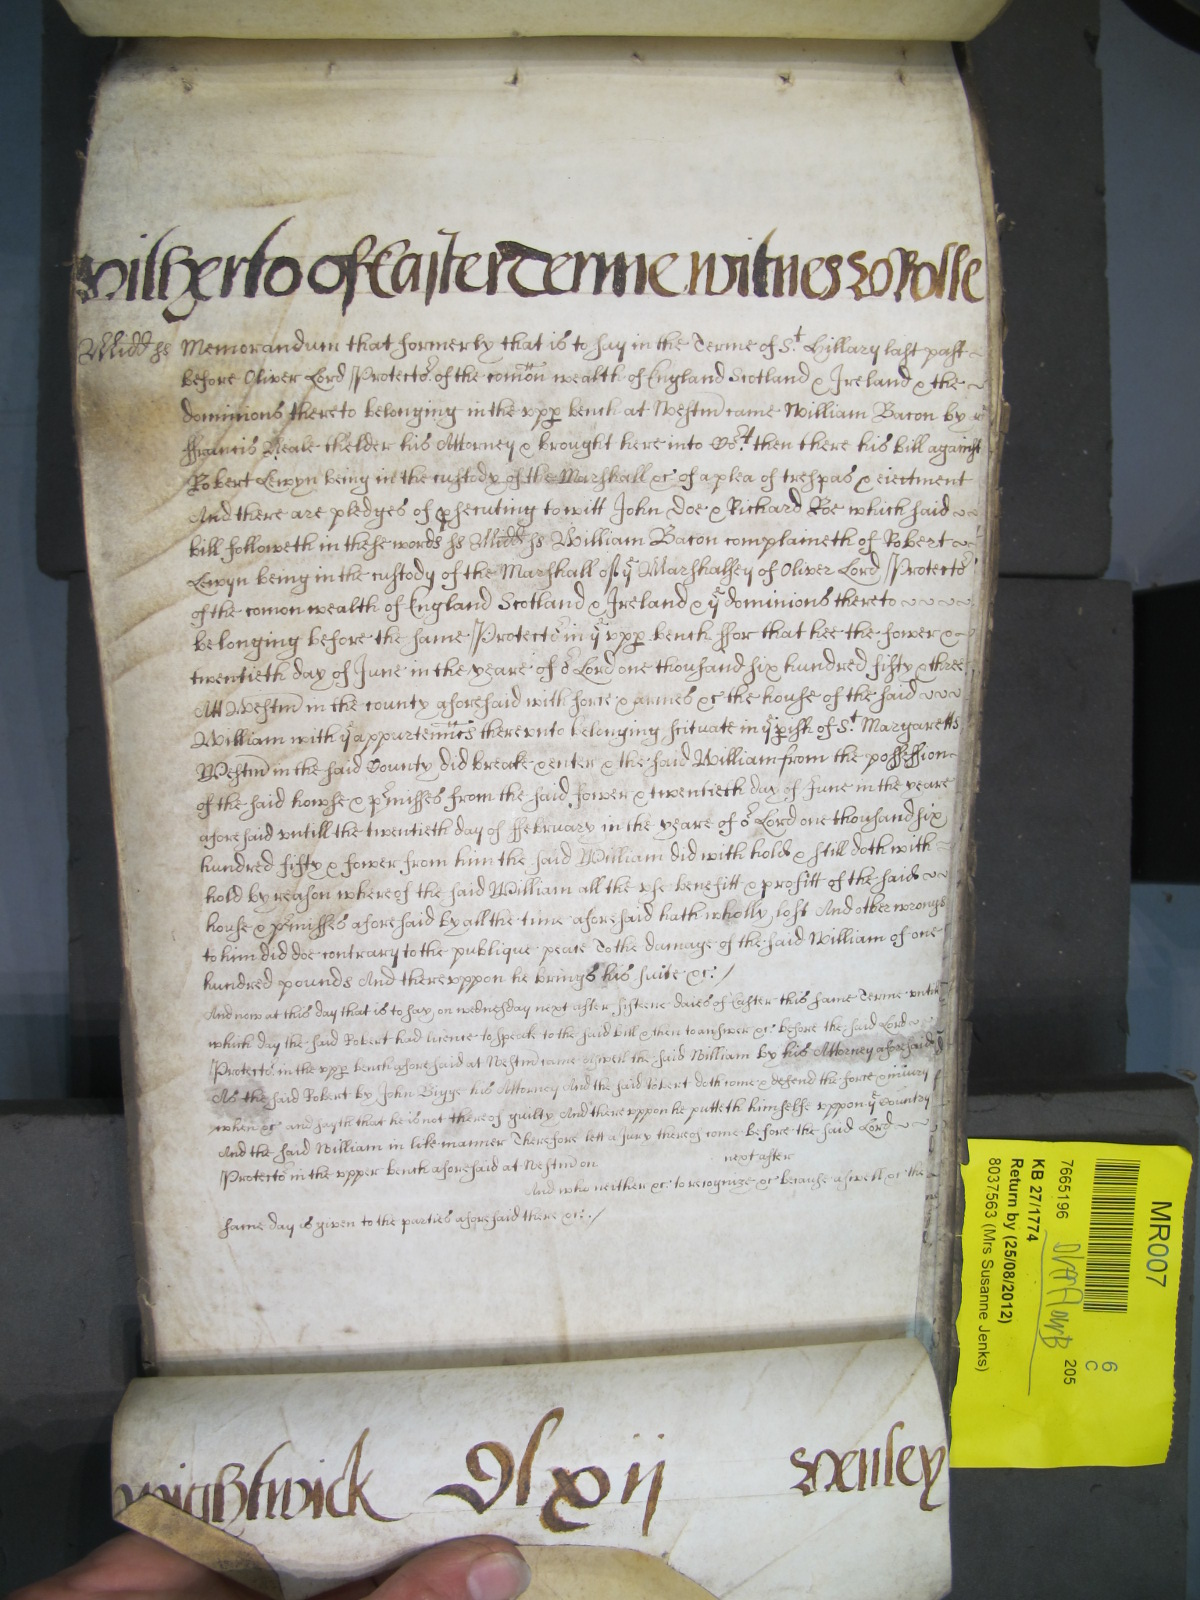 hitherto of Easter Terme witnes H Rolle
Midd ss Memorandum that formerly that is to say in the Terme of St. Hillary last past
before Oliver Lord Protector of the comon wealth of England Scotland & Ireland & the
dominions thereto belonging in the upp bench at Westm came William Bacon by
ffrancis Neale thelder his Attorney & brought here into Cort then there his bill against
Robert Lewyn being in the custody of the Marshall &c of a plea of trespas & eiectment
And there are pledges of psecuting to witt John Doe & Richard Roe which said
bill followeth in these words ss Midd ss William Bacon complaineth of Robert
Lewyn being in the custody of the Marshall of ye Marshalsey of Oliver Lord Protector
of the comon wealth of England Scotland & Ireland & ye dominions thereto
belonging before the same Protector in ye upp bench ffor that hee the fower &
twentieth day of June in the yeare of or Lord one thousand six hundred fifty & three
Att Westm in the county aforesaid with force & armes &c the house of the said
William with ye appurtenncs thereunto belonging scituate in ye pish of St. Margaretts
Westm in the said County did breake & enter & the said William from the possession
of the said howse & pmisses from the said fower & twentieth day of June in the yeare
aforesaid untill the twentieth day of ffebruary in the yeare of or Lord one thousand six
hundred fifty & fower from him the said William did with hold & still doth with
hold by reason whereof the said William all the use benefitt & profitt of the said
house & pmisses aforesaid by all the time aforesaid hath wholly lost And other wrongs
to him did doe contrary to the publique peace To the damage of the said William of one
hundred pounds And thereuppon he brings his suite &c. /
And now at this day that is to say on wednesday next after fifteene daies of Easter this same Terme untill
which day the said Robert had licence to speake to the said bill & then to answer &c before the said Lord
Protector in the upp bench aforesaid at Westm came aswell the said William by his Attorney aforesaid
As the said Robert by John Bigge his Attorney And the said Robert doth come & defend the force & iniury
when &c and sayth that he is not thereof guilty And thereuppon he putteth himselfe uppon ye Country
And the said William in like manner Therefore lett a Jury thereof come before the said Lord
Protector in the upper bench aforesaid at Westm on next after
And who neither &c to recognize &c because aswell &c the
same day is given to the parties aforesaid there &c. /
Wightwick Dlxij Henley
MR007
7665196
KB 27/1774
Return by (25/08/2012)
8037563 (Mrs Susanne Jenks)
6
C
205